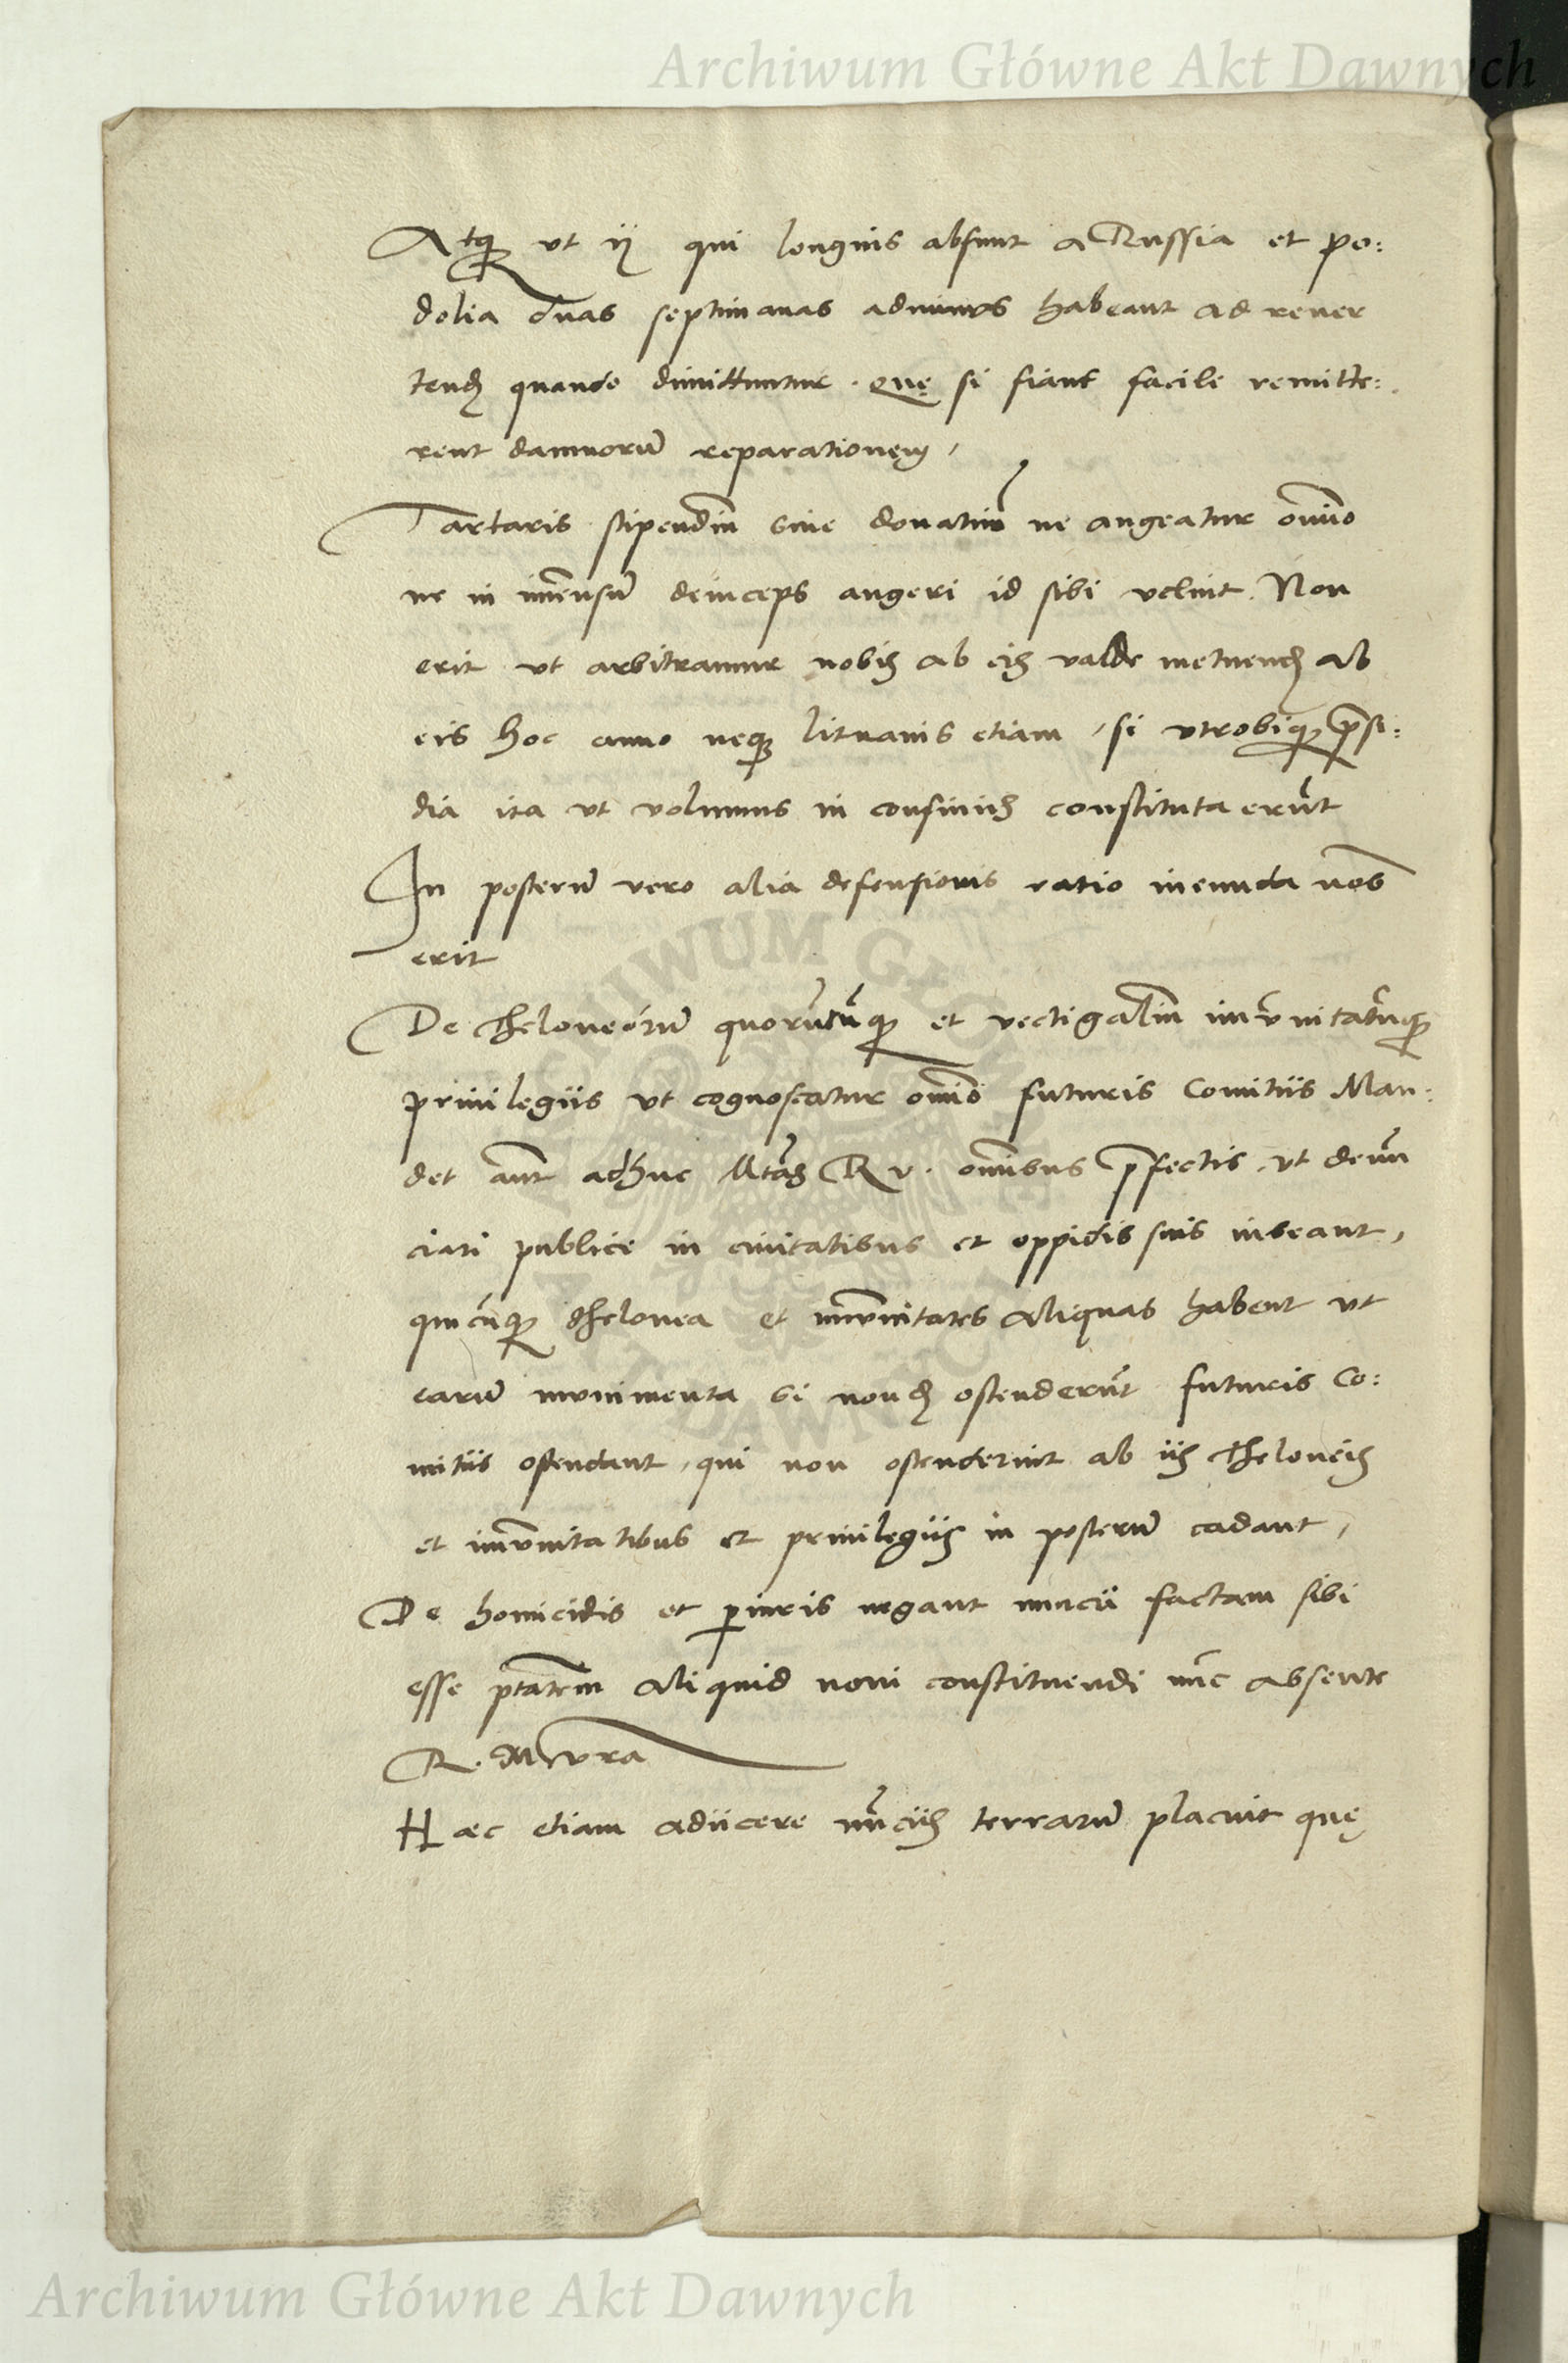 Archiwum Główne Akt Dawnych
Atq3 vt ij qui longius absunt a Russia et po:
dolia duas septimanas adminus habeant ad reuer
tend quando dimittuntur. Quę si fiant facile remitte:
rent damnorū reparationem,
Tartaris stipendiū siue donatiuū ne augeatur om̄ino
ne in im̄ensū deinceps augeri id sibi velint. Non
erit vt arbitramur nobis ab eis valde metuend ab
eis hoc anno neq3 lituanis etiam, si vtrobiq3 p̄si:
dia ita vt volumus in confiniis constituta erūt
In posterū vero alia defensionis ratio ineunda nob̄
erit
De theloneorū quorūcūq3 et vectigaliū im̄vnitatūq3
priuilegiis vt cognoscatur om̄io futuris Comitiis Man:
det aūt adhuc Mtās R v. om̄ibus p̄fectis vt denū
ciari publice in ciuitatibus et oppidis suis iubeant,
quicūq3 thelonea et im̄vnitates aliquas habent vt
earū mvnimenta si nond ostenderūt futuris Co:
mitiis ostendant, qui non ostenderint ab iis theloneis
et im̄vnitatibus et priuilegiis in posterū cadant,
De homicidis et piuris negant nuncii factam sibi
esse ptātem aliquid noui constituendi nūc absente
R. M vra
Haec etiam adiicere nūciis terrarū placuit quę
ARCHIWUM GŁÓWNE AKT DAWNYCH
Archiwum Główne Akt Dawnych